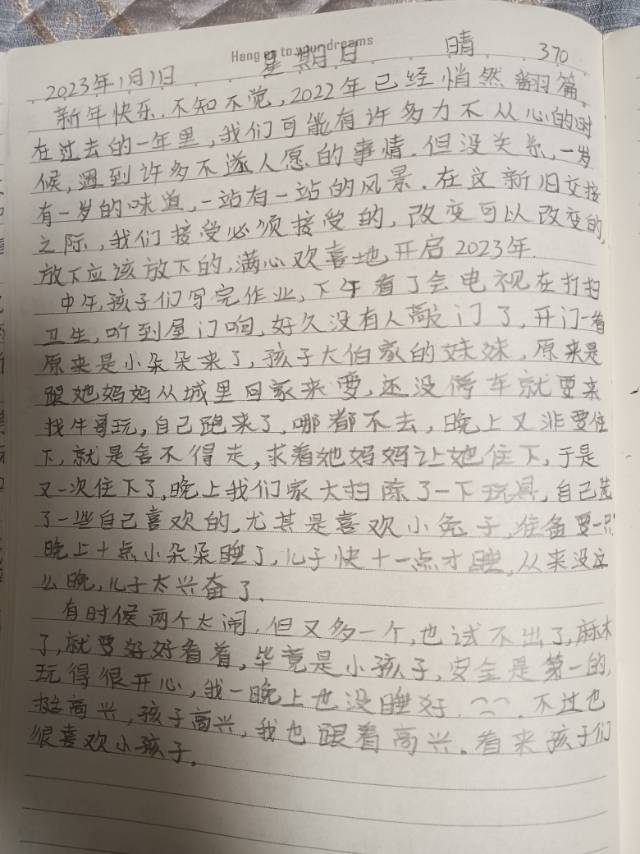 Hang on to your dreams
2023年1月1日 星期日 晴 370
新年快乐,不知不觉,2022年已经悄然翻篇。
在过去的一年里,我们可能有许多力不从心的时
候,遇到许多不遂人愿的事情,但没关系,一岁
有一岁的味道,一站有一站的风景.在这新旧交接
之际,我们接受必须接受的,改变可以改变的,
放下应该放下的,满心欢喜地开启2023年.
中午,孩子们写完作业,下午看了会电视在打扫
卫生,听到屋门响,好久没有人敲门了,开门一看
原来是小朵朵来了,孩子大伯家的妹妹,原来是
跟她妈妈从城里回家来要,还没停车就要来
找牛哥玩,自己跑来了,哪都不去,晚上又非要住
下,就是舍不得走,求着她妈妈让她住下,于是
又一次住下了,晚上我们家大扫除了一下玩具,自己选
了一些自己喜欢的,尤其是喜欢小兔子,准备要一只
晚上十点小朵朵睡了,儿子快十一点才睡,从来没这
么晚,儿子太兴奋了.
有时候两个太闹,但又多一个,也试不出了,麻木
了,就要好好看着,毕竟是小孩子,安全是第一的,
玩得很开心,我一晚上也没睡好.不过也
挺高兴,孩子高兴,我也跟着高兴。看来孩子们
很喜欢小孩子。